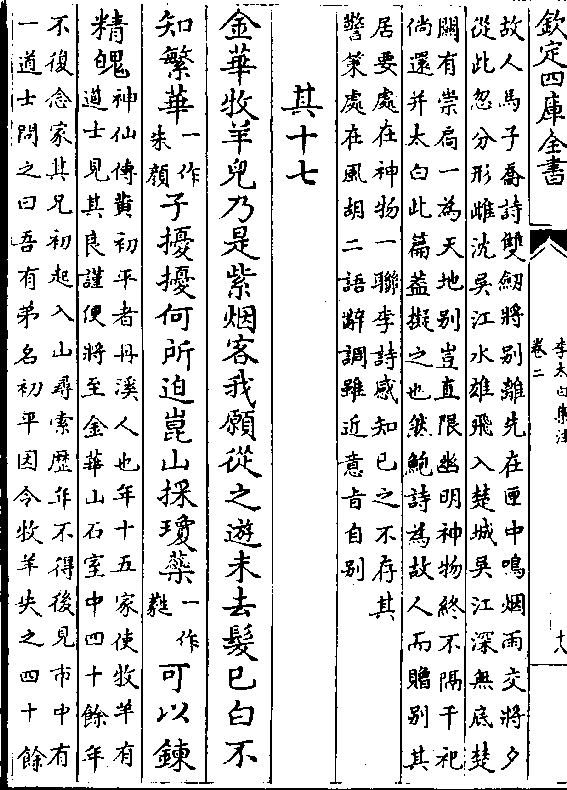 欽定四庫全書
李太白集注
卷二
十八
故人馬子喬詩雙劒將别離先在匣中鳴烟雨交將夕
從此忽分形雌沈吳江水雄飛入楚城吳江深無底楚
關有崇扃一為天地别豈直限幽明神物終不隔千祀
倘還并太白此篇葢擬之也然鮑詩為故人而贈别其
居要處在神物一聯李詩感知已之不存其
警策處在風胡二語辭調雖近意旨自别
其十七
金華牧羊兒乃是紫烟客我願從之遊未去髮已白不
知繁華一作朱顔子擾擾何所迫崑山採瓊蘂一作蕤可以鍊
精魄神仙傳黄初平者丹溪人也年十五家使牧羊有
道士見其良謹便將至金華山石室中四十餘年
不復念家其兄初起入山尋索歴年不得後見市中有
一道士問之曰吾有弟名初平因令牧羊失之四十餘